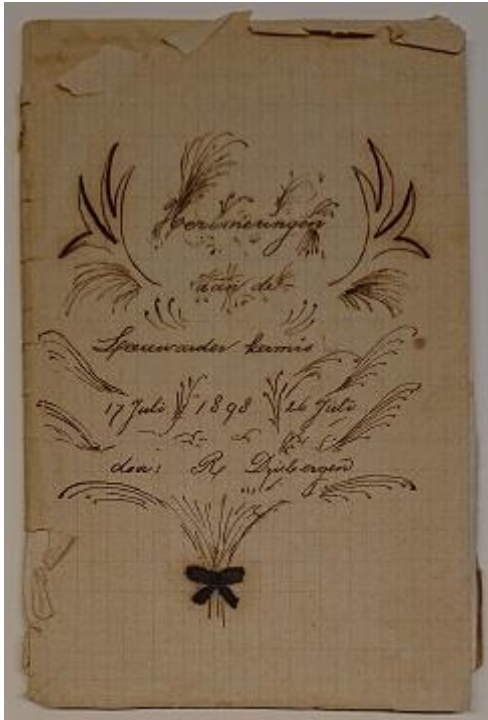 Herinneringen
aan de
Leeuwarder kermis
17 Juli 1898 26 Juli
door: R Dijbergen